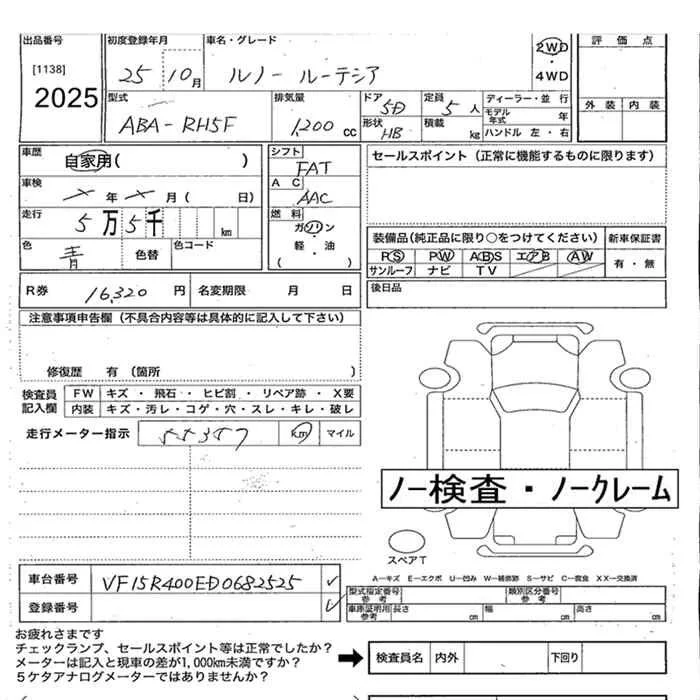 出品番号 初度登録年月 車名・グレード 2WD 評価点
[1138] 25 10月 ルノー ルーテシア 4WD
2025 型式 排気量 ドア 5D 定員 5人 ディーラー・並行 外装 内装
ABA-RH5F 1,200 cc 形状 HB 積載 kg モデル年式 年
ハンドル 左・右
車歴 自家用( ) シフト FAT セールスポイント（正常に機能するものに限ります）
車検 年 月( 日) AC AAC
走行 5万5千 km 燃料 ガソリン
軽・油
( )
装備品(純正品に限り○をつけてください) 新車保証書
色 青 色替 色コード PS PW ABS エアB AW 有・無
サンルーフ ナビ TV
R券 16,320円 名変期限 月 日 後日品
注意事項申告欄（不具合内容等は具体的に記入して下さい）
修復歴 有（箇所 ）
検査員記入欄 FW キズ・飛石・ヒビ割・リペア跡・X要
内装 キズ・汚レ・コゲ・穴・スレ・キレ・破レ
走行メーター指示 55357 km マイル
ノー検査・ノークレーム
スペアT
A－キズ E－エクボ U－凹み W－補修跡 S－サビ C－腐食 XX－交換済
車台番号 VF15R400ED0682525 型式指定番号 参考 類別区分番号 参考
登録番号 車庫証明用 参考 長さ cm 幅 cm 高さ cm
お疲れさまです
チェックランプ、セールスポイント等は正常でしたか？
メーターは記入と現車の差が1,000km未満ですか？
5ケタアナログメーターではありませんか？
検査員名 内外 下回り